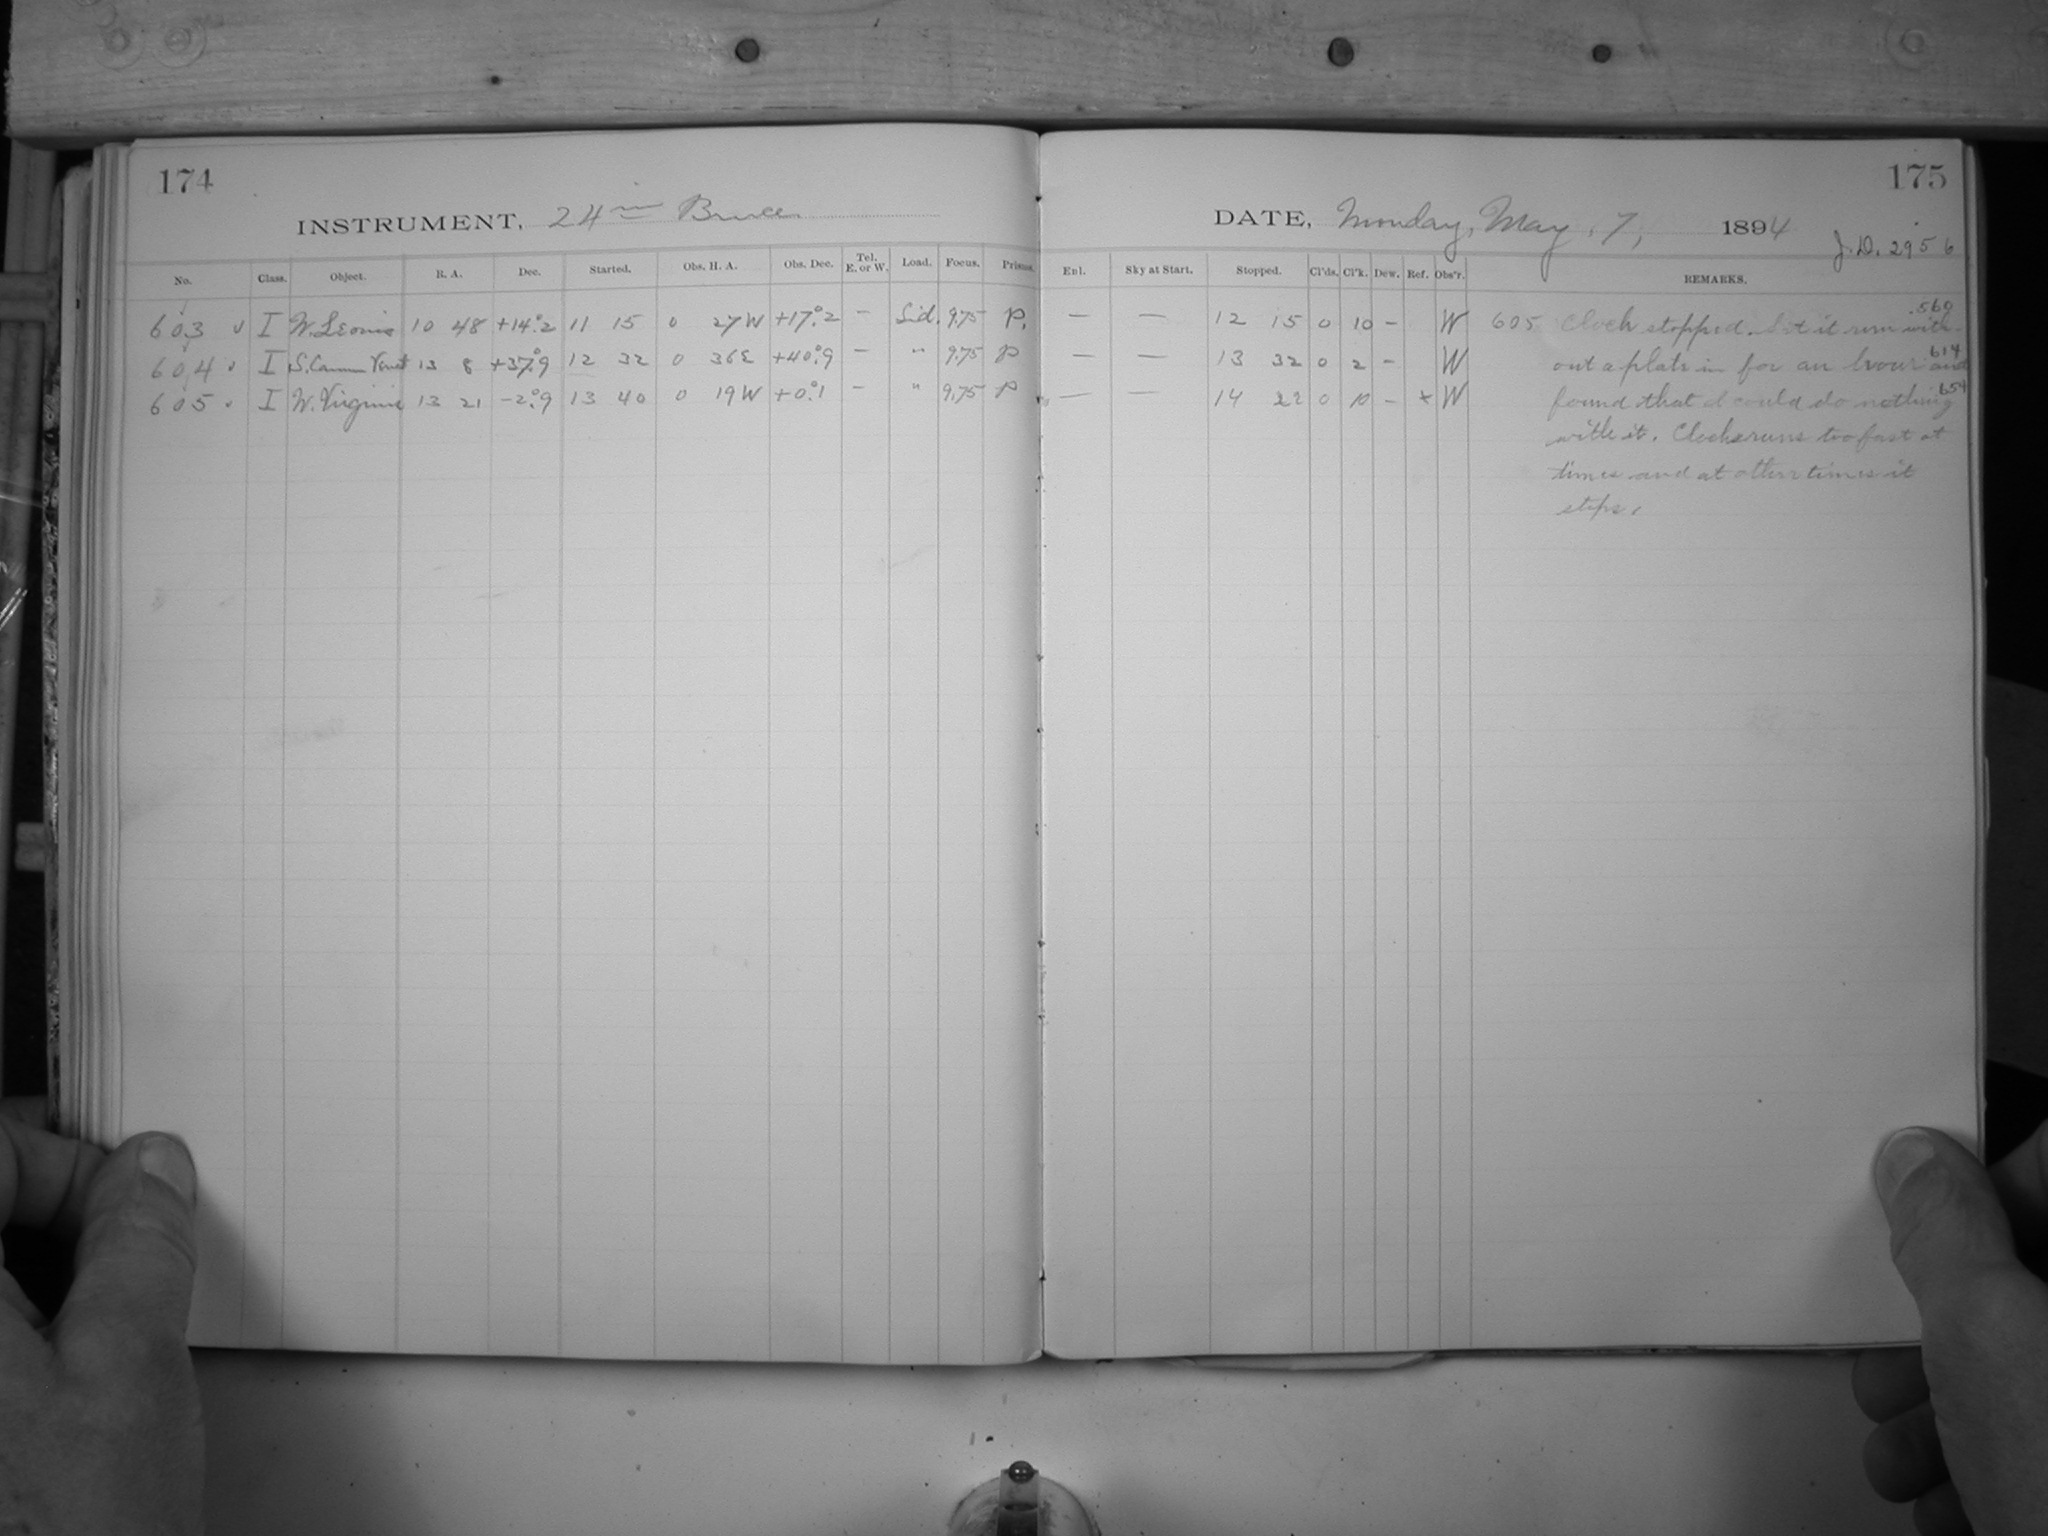 174
INSTRUMENT, 24 in Bruce
No. Class. Object. R. A. Dec. Started. Obs. H. A. Obs. Dec. Tel. E. or W. Load. Focus. Prisms.
603 √ I W. Leonis 10 48 +14°.2 11 15 0 27W +17°.2 – Sid. 9.75 P.
604 √ I S. Canum Venat 13 8 +37°.9 12 32 0 36E +40°.9 – " 9.75 P
605 √ I W. Virginis 13 21 -2°.9 13 40 0 19W +0°.1 – " 9.75 P
175
DATE, Monday, May, 7, 1894
J.D. 2956
Enl. Sky at Start. Stopped. Cl'ds. Cl'k. Dew. Ref. Obs'r. REMARKS.
— — 12 15 0 10 – W 605 Clock stopped. Let it run with- .569
— — 13 32 0 2 – W out a plate in for an hour and 614
— — 14 22 0 10 – × W found that I could do nothing 654
with it. Clock runs too fast at
times and at other times it
stops.